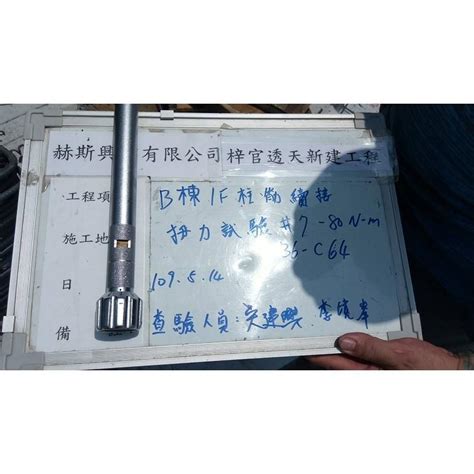 赫斯興 有限公司梓官透天新建工程
工程項 B棟1F柱筋續接
施工地 扭力試驗 #7-80N-m
36-C64
日 109.5.14
備 查驗人員:吳建興、李